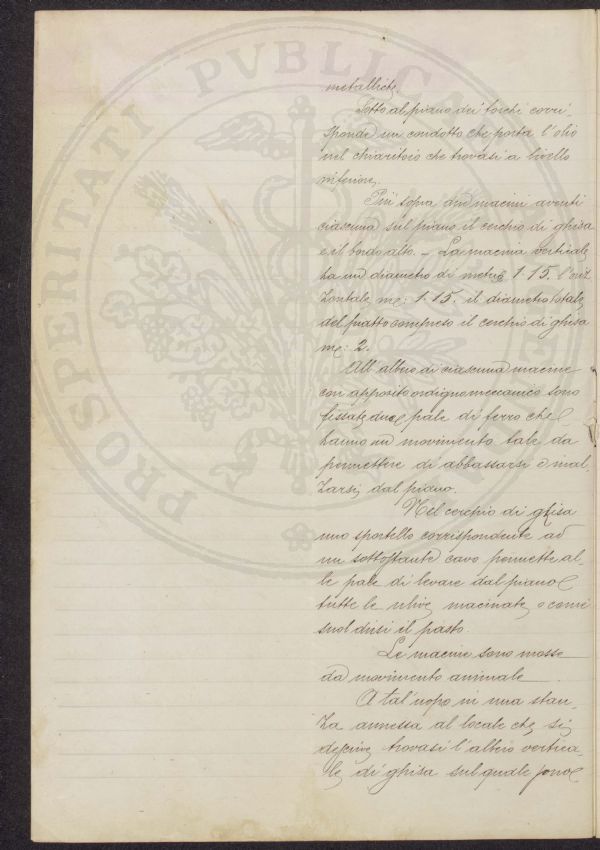 PROSPERITATI PVBLICAE
metalliche.
Sotto al piano dei torchi corri=
sponde un condotto che porta l'olio
nel chiaritoio che trovasi a livello
inferiore.
Più sopra due macine aventi
ciascuna sul piano il cerchio di ghisa
e il bordo alto. - La macina verticale
ha un diametro di metri 1.15. l'oriz
zontale me: 1.15. il diametro totale
del piatto compreso il cerchio di ghisa
me: 2.
All'albero di ciascuna macine
con apposito ordigno meccanico sono
fissate due pale di ferro che
hanno un movimento tale da
permettere di abbassarsi e inal
zarsi dal piano.
Nel cerchio di ghisa
uno sportello corrispondente ad
un sottostante cavo permette al_
le pale di levare dal piano
tutte le ulive macinate, o come
suol dirsi il pasto.
Le macine sono mosse
da movimento animale
A tal'uopo in una stan_
za annessa al locale che si
descrive trovasi l'albero vertica_
le di ghisa sul quale sono